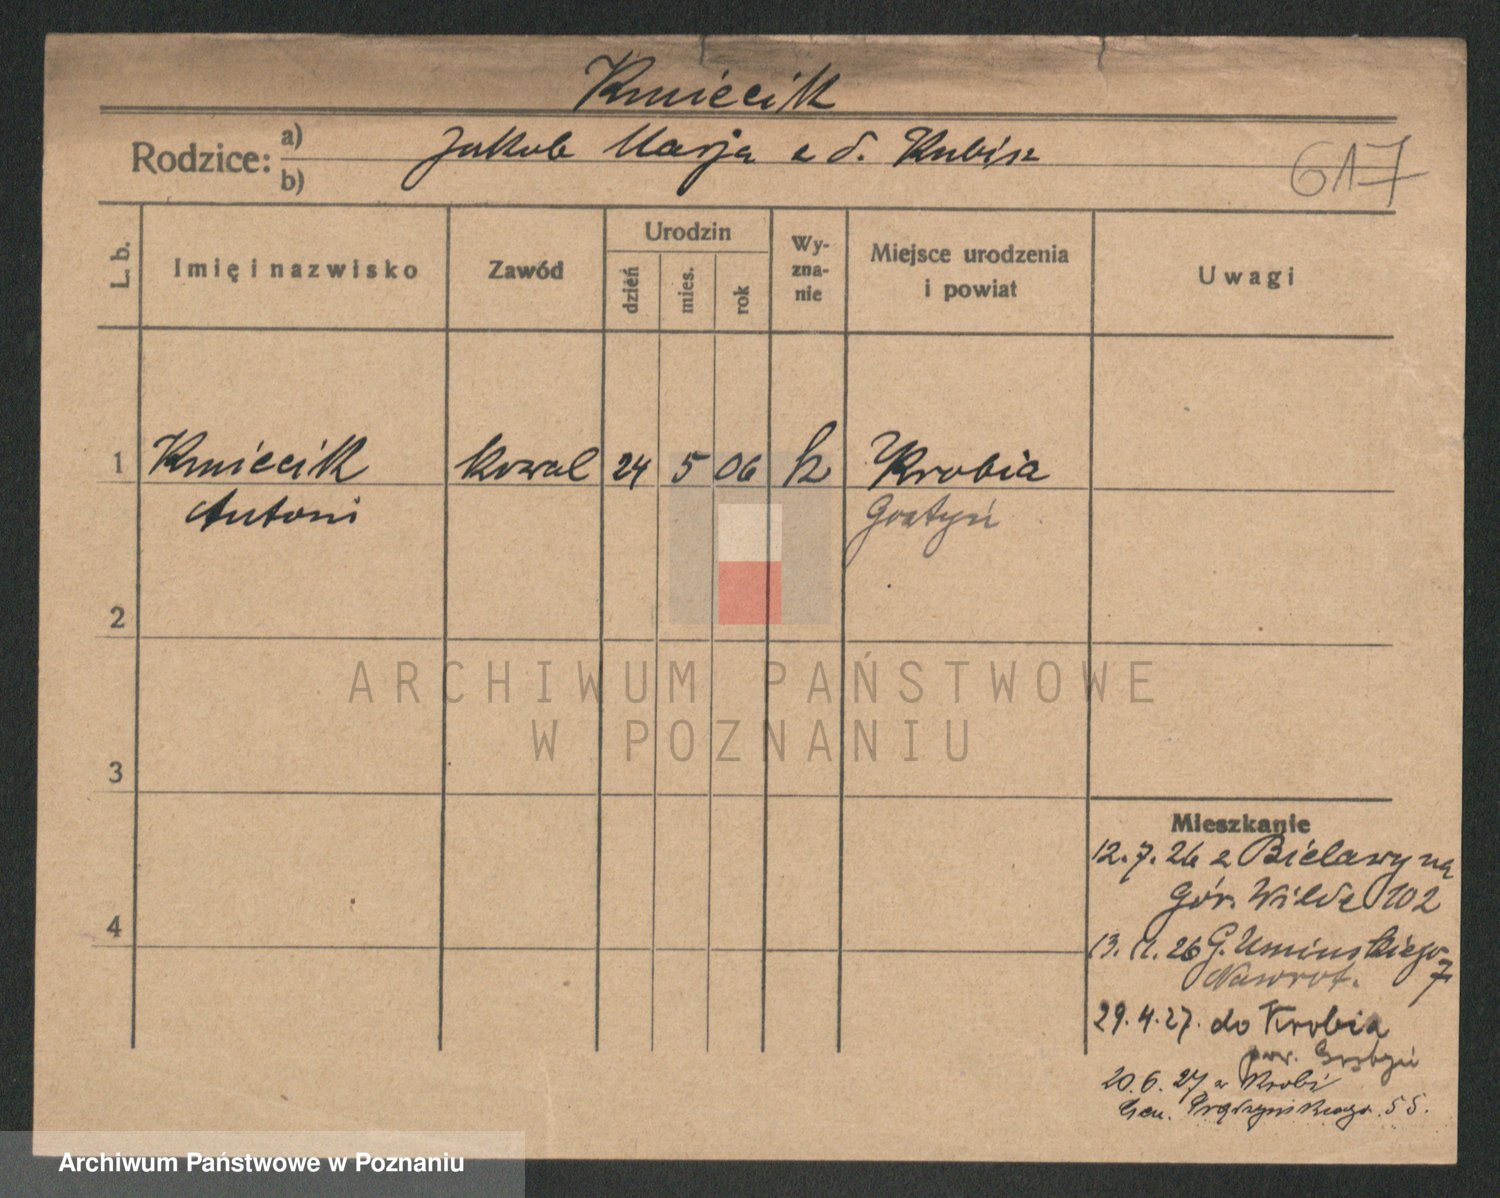 Kmiecik
Rodzice: a) b) Jakob Marja z d. Kubisz
617
L. b. Imię i nazwisko Zawód Urodzin dzień mies. rok Wyznanie Miejsce urodzenia i powiat Uwagi
1 Kmiecik kowal 24 5 06 k Krobia
Antoni Gostyń
2
ARCHIWUM PAŃSTWOWE
W POZNANIU
3
Mieszkanie
12.7.26 z Bielawy na
Gór. Wilde 102
4
13.11.26 G. Umińskiego 7
Nawrot.
29.4.27. do Krobia
pow. Gostyń
20.6.27 z Krobi
Gen. Prądzyńskiego 55.
Archiwum Państwowe w Poznaniu